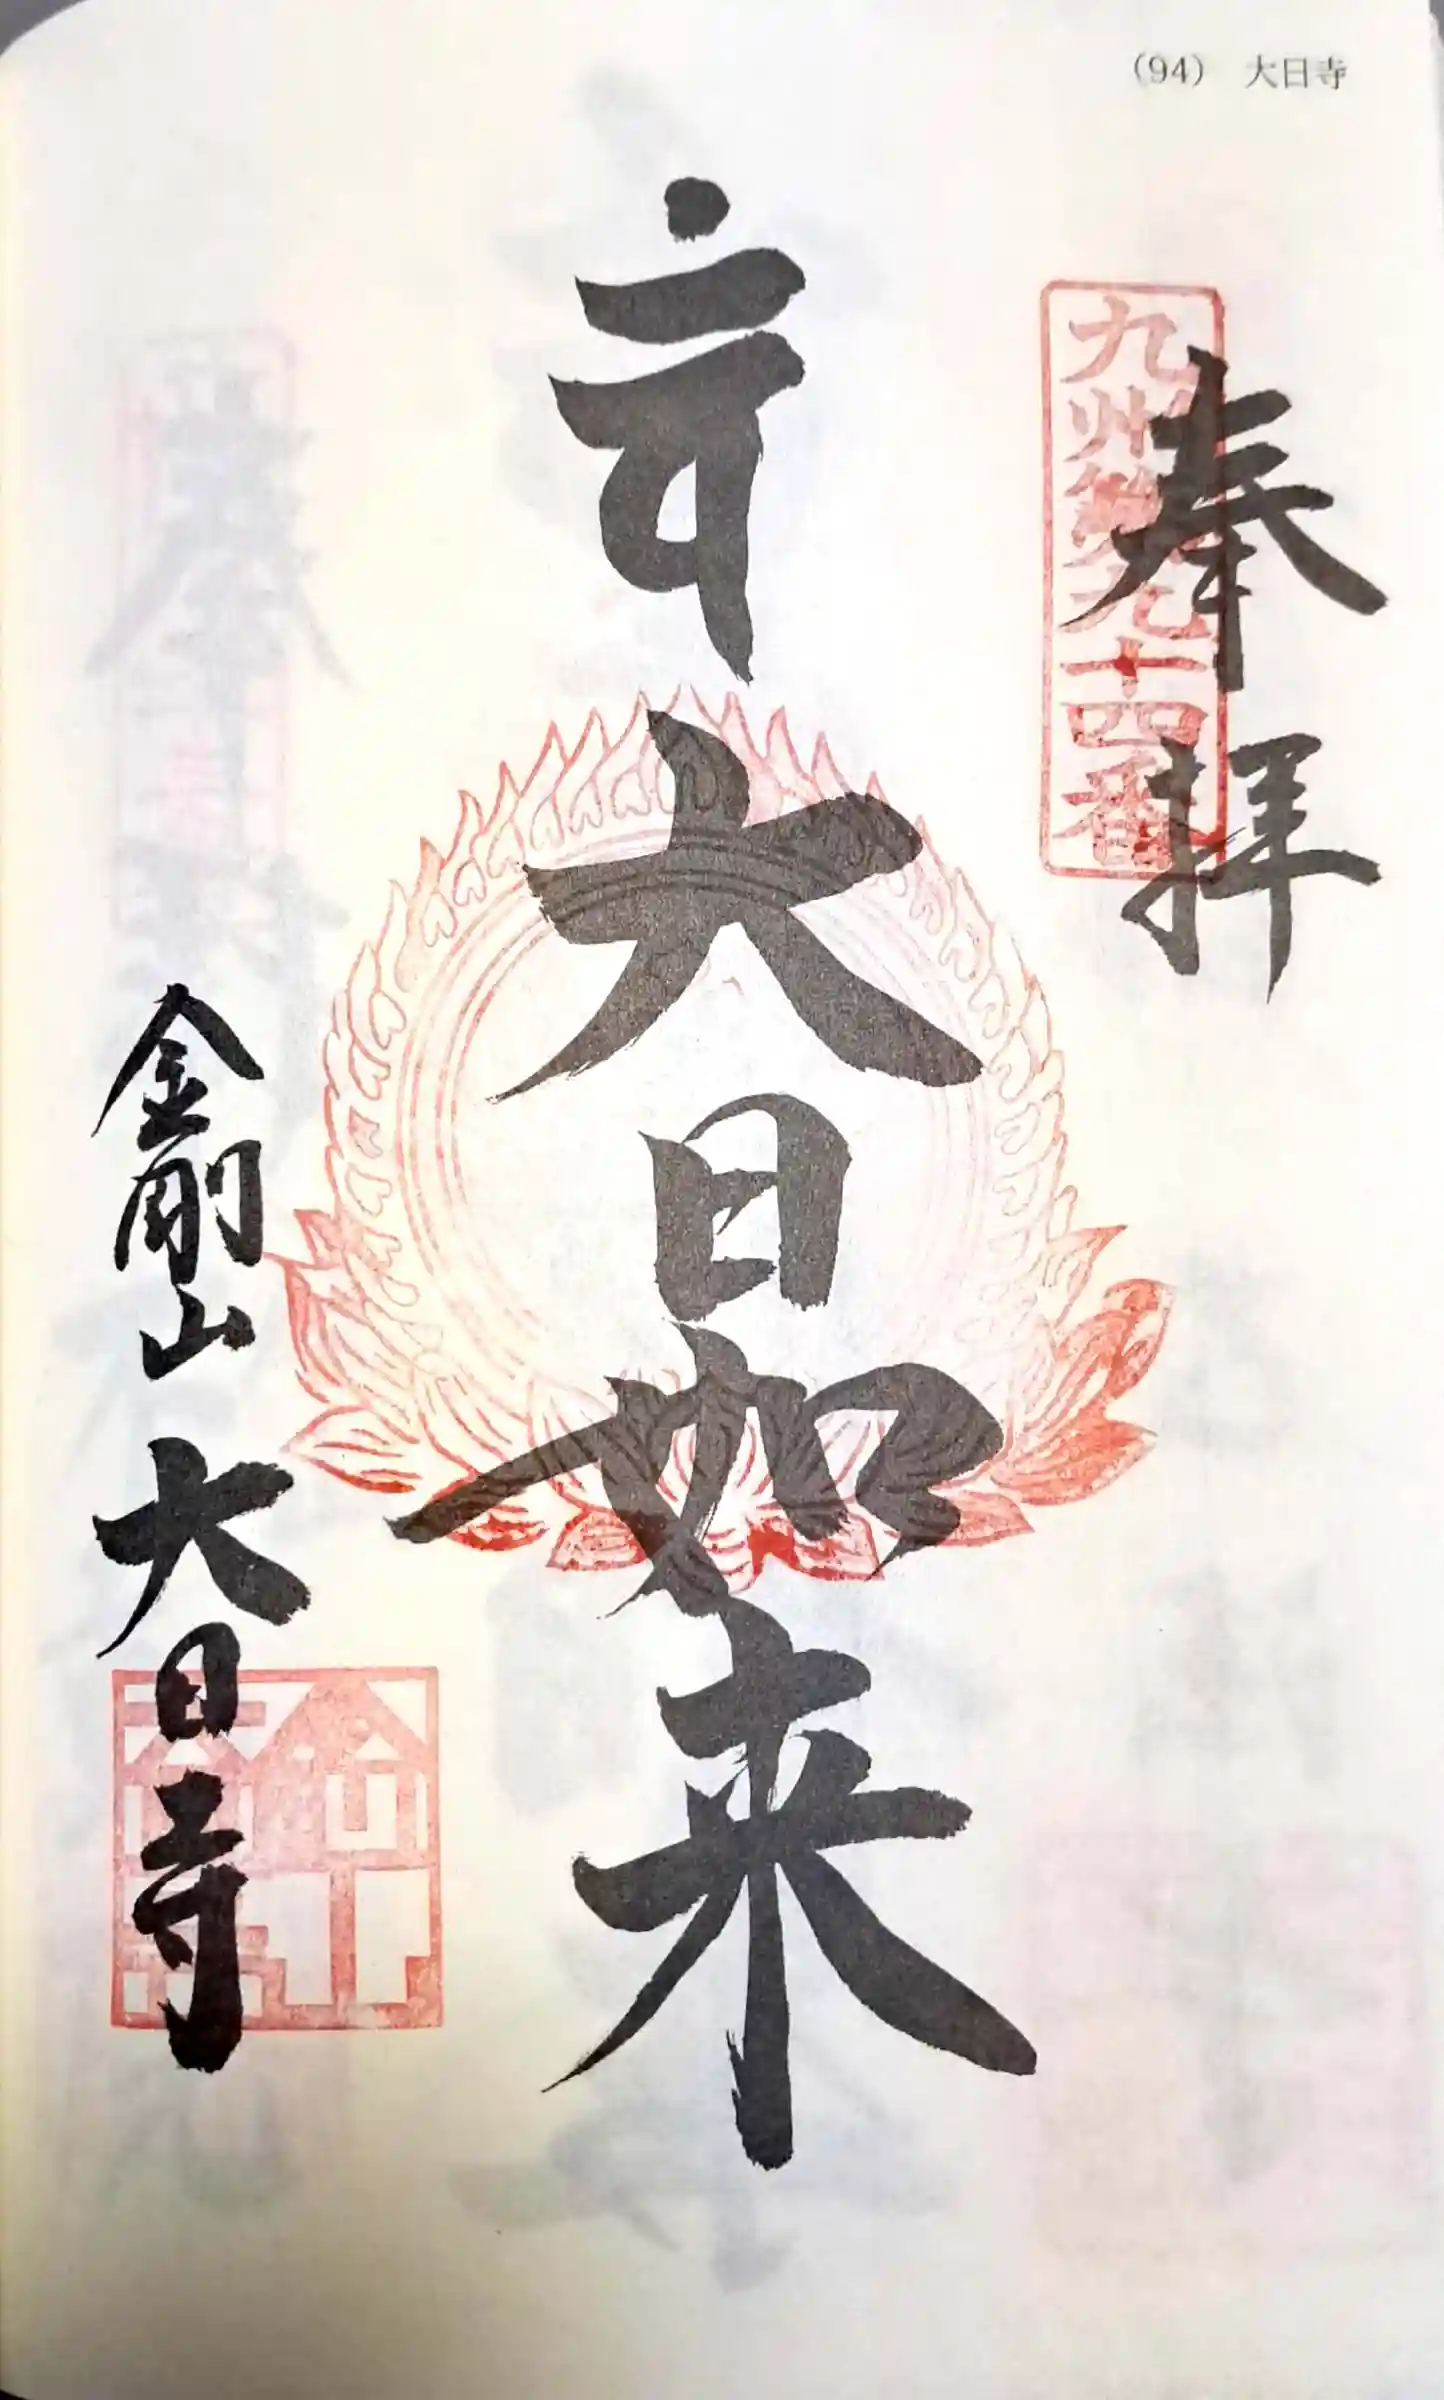 (94) 大日寺
奉拝
九州第九十四番
𑖪𑖽
大日如来
金剛山
大日寺